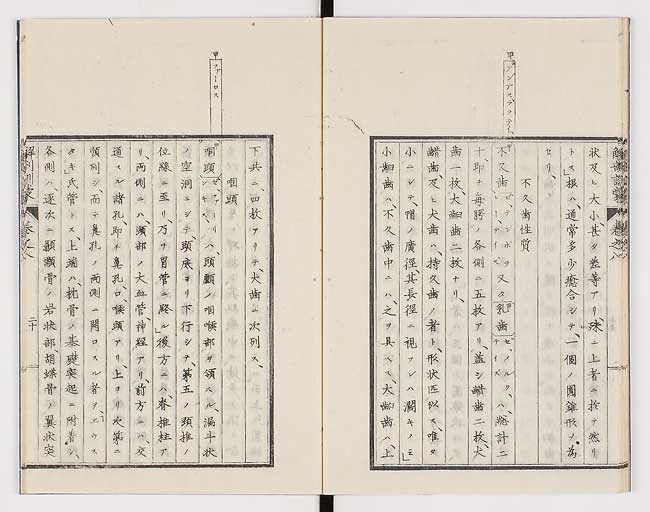 甲
アンデスプラテー甲
状及ヒ大小甚タ差等アリ殊ニ上者ニ於テ然リ
トス根ハ、通常多少癒合シテ、一個ノ圓錐形ヲ為
セリ、
不久歯性質
不久歯 又タ乳歯 ハ、総計二
十、即チ毎腭ノ各側ニ五枚アリ、蓋シ齰歯二枚、犬
歯一枚、大齟歯二枚ナリ、
齰歯及ヒ犬歯ハ、持久歯ノ者ト形状匹似ス、唯タ
小ニシテ、帽ノ廣徑其長徑ニ視フレハ濶キノミ
小齟歯ハ、不久歯中ニハ、之ヲ具ヘス、大齟歯ハ、上
解剖訓蒙
巻之八
甲
ファーロス
下共ニ四枚アリテ、犬歯ニ次列ス、
咽頭
咽頭 ハ、頭顱ノ咽喉部ヲ領スル漏斗状
ノ空洞ニシテ頭底ヨリ下行シテ、第五ノ頚椎ノ
位線ニ至リ乃チ胃管ニ終ル後方ニハ、脊椎柱ア
リ両側ニハ、頭部ノ大血管神経アリ、前方ニハ、交
通スル諸孔即チ鼻孔口、喉頭アリ、上ヨリ次第ニ
順列シ、而テ鼻孔ノ両側ニ開口スル者ヲ、エウス
タキ氏管トス、上端ハ、枕骨ノ基礎突起ニ附着シ、
各側ハ逐次ニ顳顬骨ノ岩状部胡蝶骨ノ翼状突
解剖訓蒙
巻之八
二十